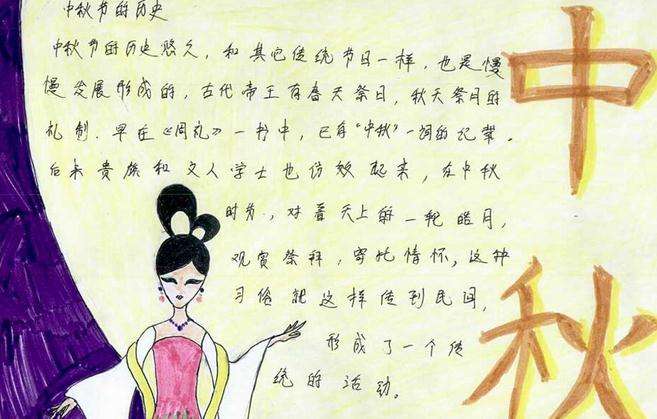 中秋节的历史
中秋节的历史悠久，和其它传统节日一样，也是慢
慢发展形成的，古代帝王有春天祭日，秋天祭月的
礼制。早在《周礼》一书中，已有“中秋”一词的记载。
后来贵族和文人学士也仿效起来，在中秋
时分，对着天上的一轮皓月，
观赏祭拜，寄托情怀，这种
习俗就这样传到民间，
形成了一个传
统的活动。
中
秋